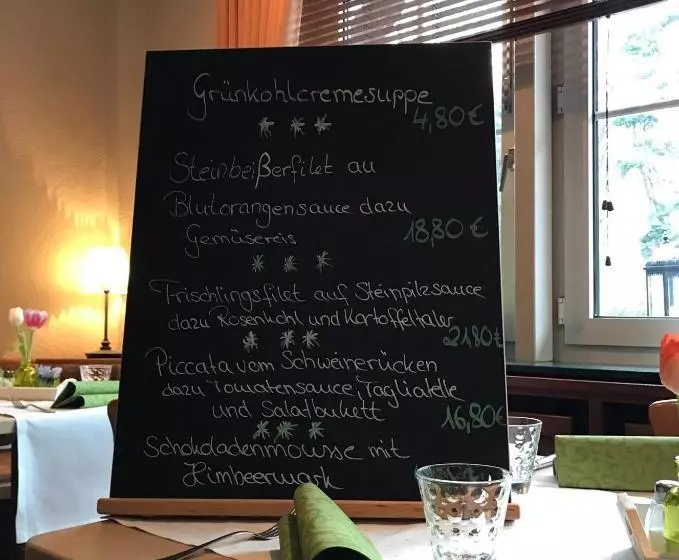 Grünkohlcremesuppe
4,80€
Steinbeißerfilet au
Blutorangensauce dazu
Gemüsereis 18,80€
Frischlingsfilet auf Steinpilzsauce
dazu Rosenkohl und Kartoffeltaler
21,80€
Piccata vom Schweinerücken
dazu Tomatensauce, Tagliatelle
und Salatbukett 16,80€
Schokoladenmousse mit
Himbeermark